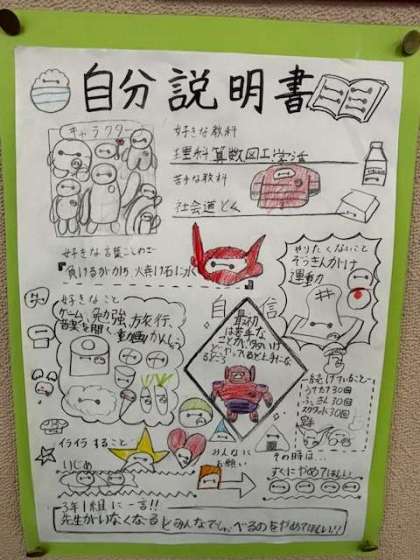 自分説明書
キャラクター
好きな教科
理科算数図工学活
苦手な教科
社会道とく
好きな言葉ことわざ
やりたくないこと
ぞうきんがけ
運動
好きなこと
ゲーム、勉強、旅行、
音楽を聞く、動画
自信
最初
は苦手な
ことが
イライラすること
いじめ
みんなに
お願い
その時は…
すぐにやめてほしい
一言続けていること
30回
30回
スクワット30回
3年1組に一言!!
先生がいなくなるとみんなでしゃべるのをやめてほしい!!